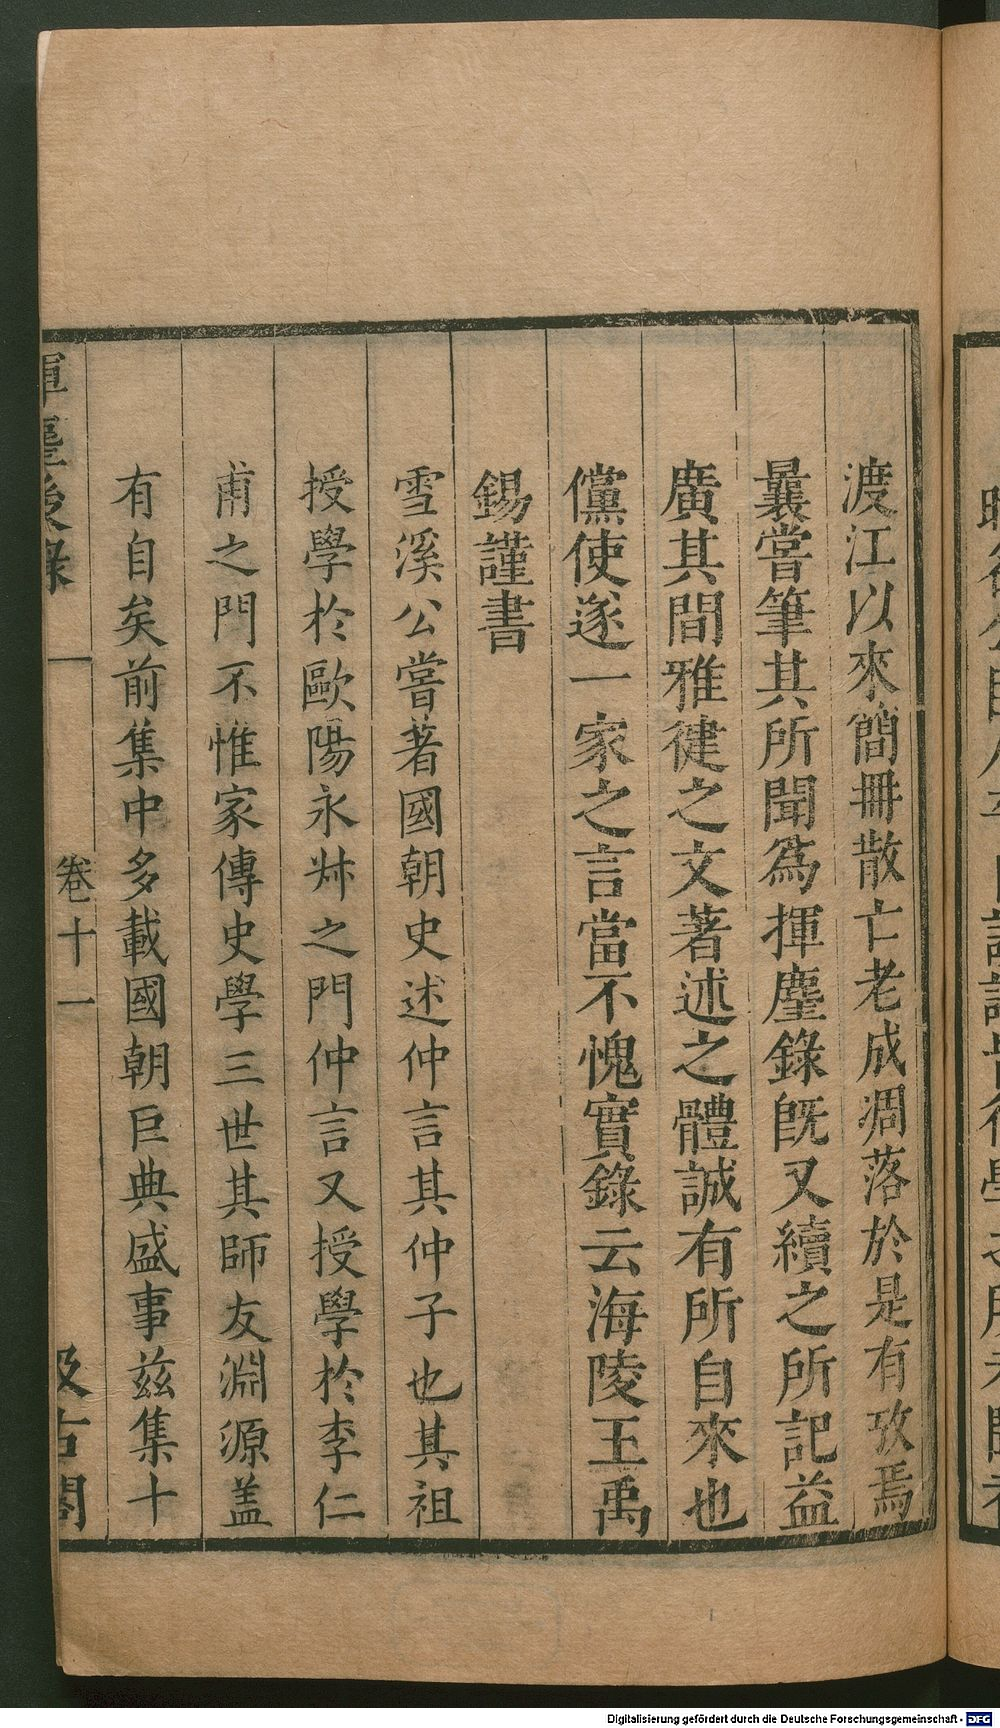 渡江以來簡冊散亡老成凋落於是有攷焉
曩嘗筆其所聞爲揮麈錄旣又續之所記益
廣其間雅健之文著述之體誠有所自來也
儻使遂一家之言當不愧實錄云海陵王禹
錫謹書
雪溪公嘗著國朝史述仲言其仲子也其祖
授學於歐陽永叔之門仲言又授學於李仁
甫之門不惟家傳史學三世其師友淵源盖
有自矣前集中多載國朝巨典盛事兹集十
揮麈後錄
卷十一
汲古閣
Digitalisierung gefördert durch die Deutsche Forschungsgemeinschaft - DFG